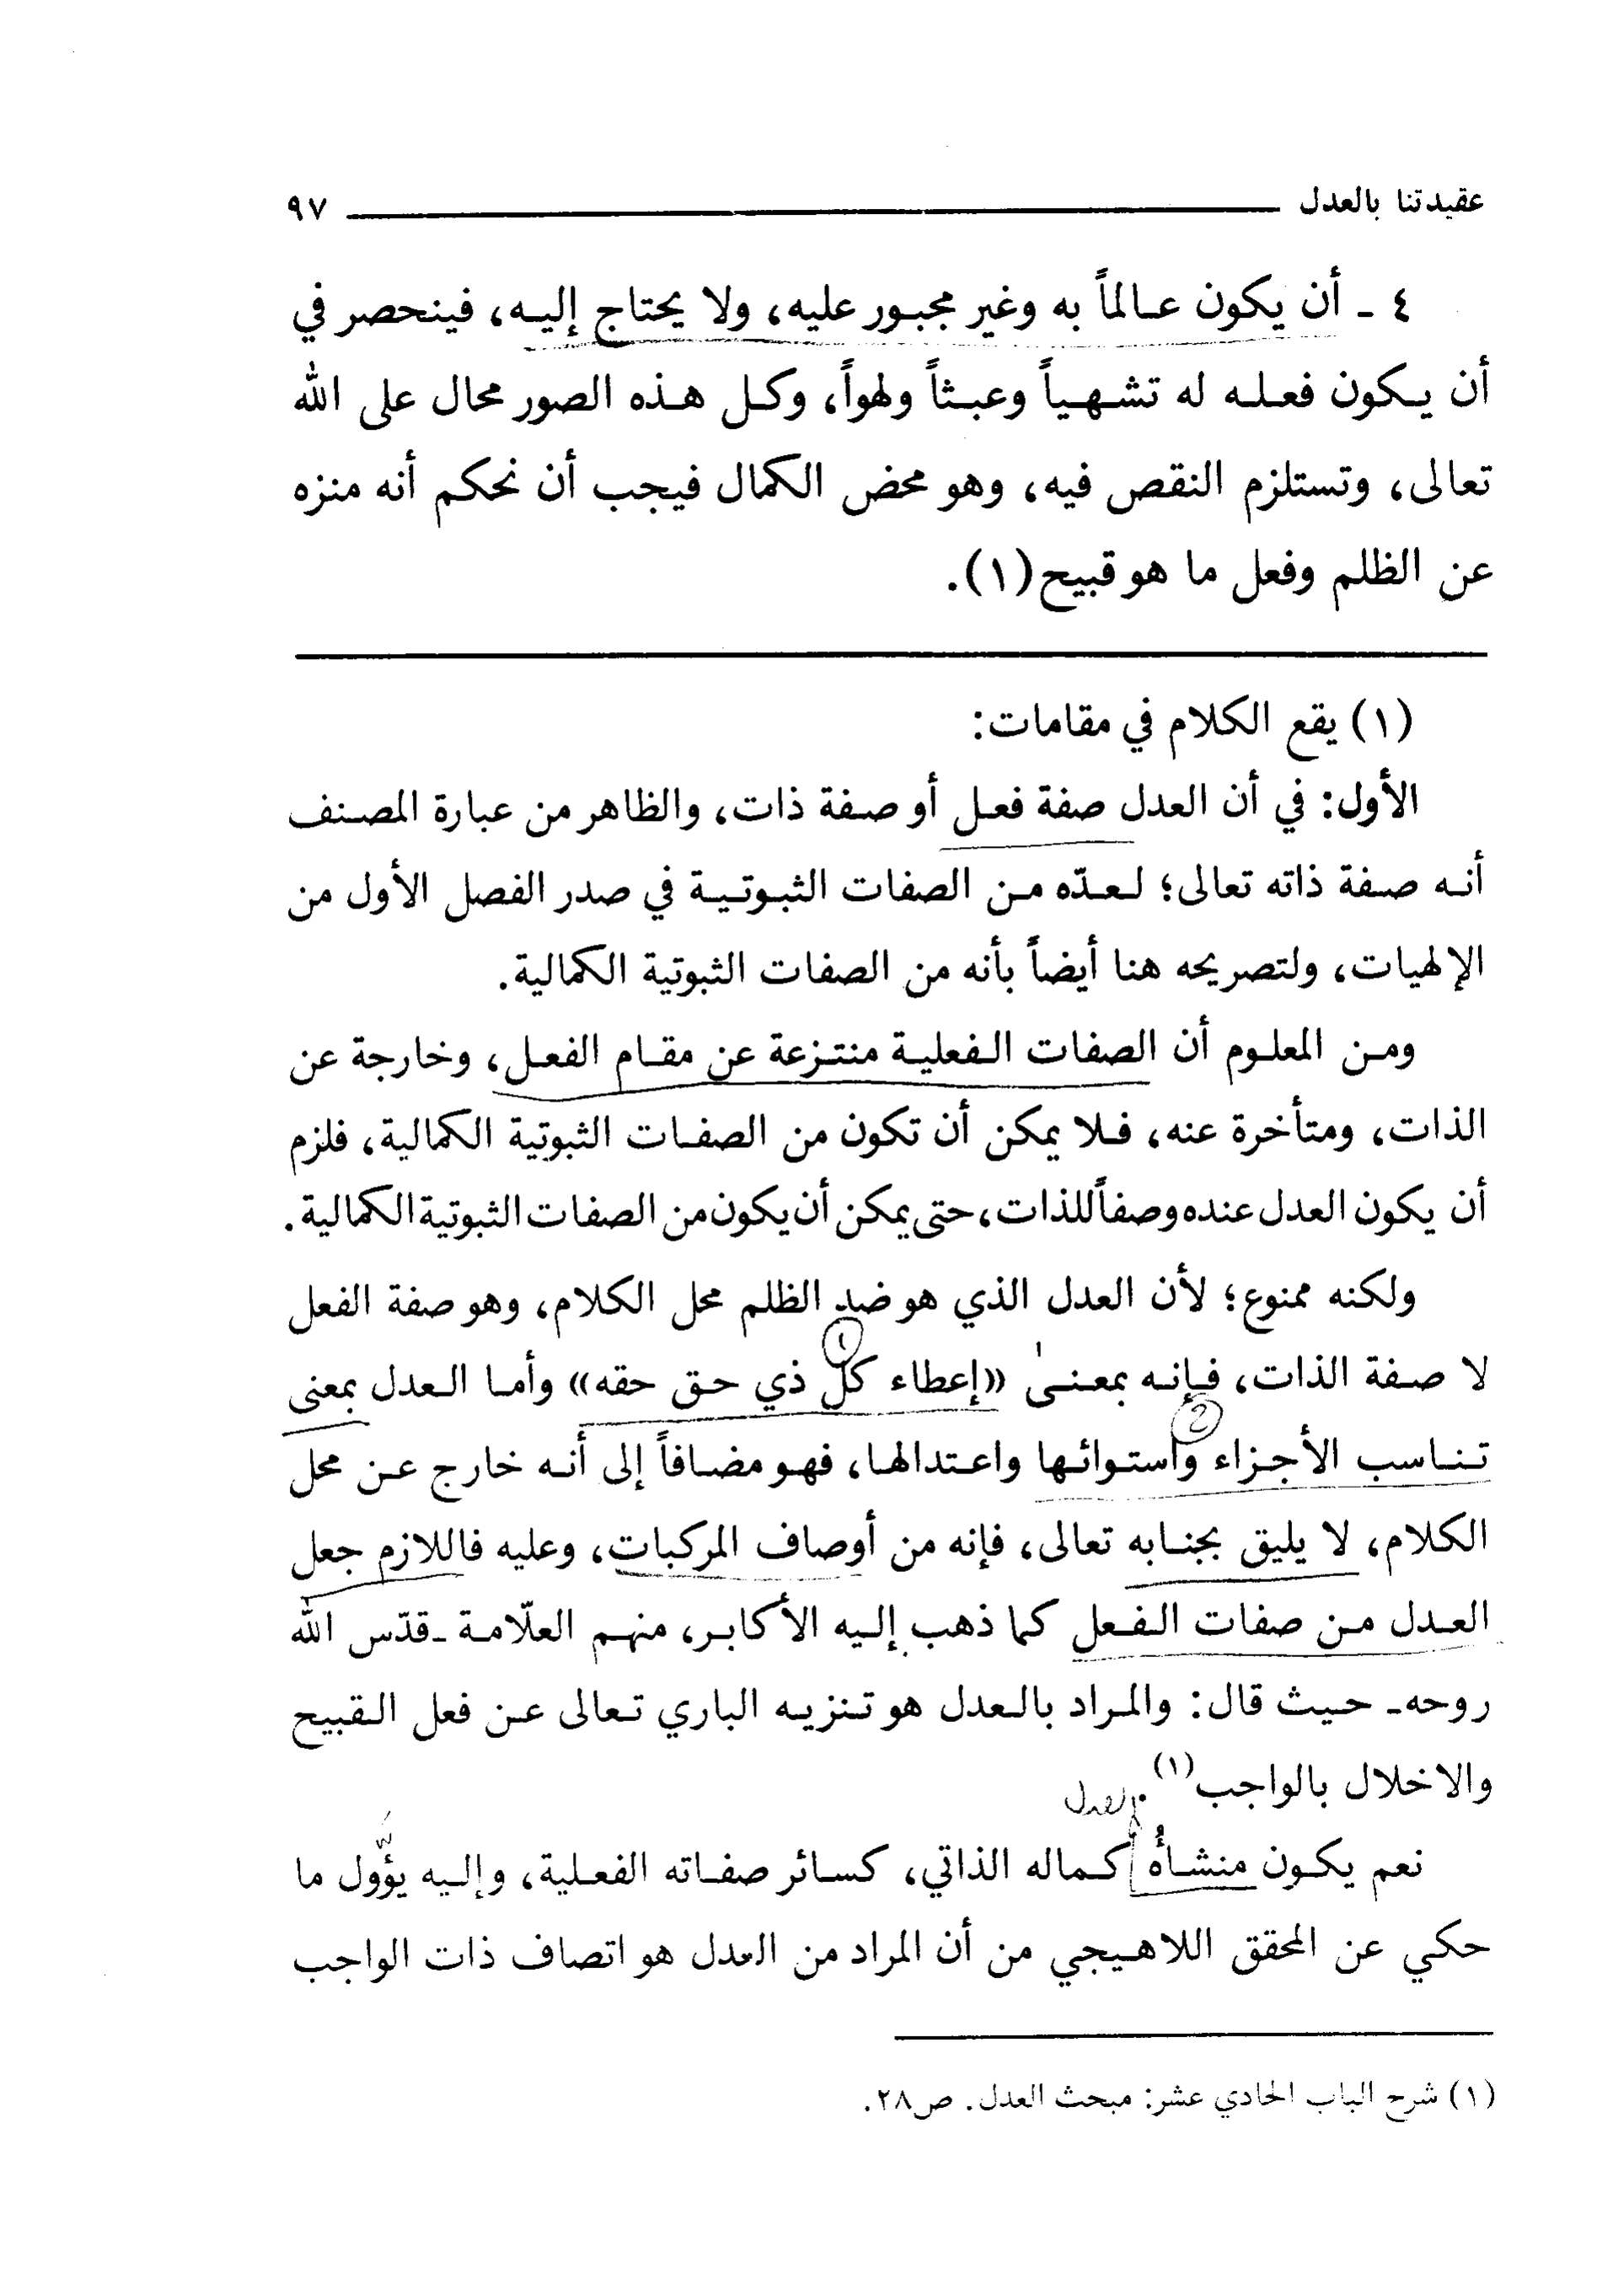 عقيدتنا بالعدل ٩٧
٤ ـ أن يكون عالماً به وغير مجبور عليه، ولا يحتاج إليه، فينحصر في
أن يكون فعله له تشهياً وعبثاً ولهواً، وكل هذه الصور محال على الله
تعالى، وتستلزم النقص فيه، وهو محض الكمال فيجب أن نحكم أنه منزه
عن الظلم وفعل ما هو قبيح (١).
(١) يقع الكلام في مقامات:
الأول: في أن العدل صفة فعل أو صفة ذات، والظاهر من عبارة المصنف
أنه صفة ذاته تعالى؛ لعدّه من الصفات الثبوتية في صدر الفصل الأول من
الإلهيات، ولتصريحه هنا أيضاً بأنه من الصفات الثبوتية الكمالية.
ومن المعلوم أن الصفات الفعلية منتزعة عن مقام الفعل، وخارجة عن
الذات، ومتأخرة عنه، فلا يمكن أن تكون من الصفات الثبوتية الكمالية، فلزم
أن يكون العدل عنده وصفاً للذات، حتى يمكن أن يكون من الصفات الثبوتية الكمالية.
ولكنه ممنوع؛ لأن العدل الذي هو ضد الظلم محل الكلام، وهو صفة الفعل
١
لا صفة الذات، فإنه بمعنى «إعطاء كل ذي حق حقه» وأما العدل بمعنى
2
تناسب الأجزاء واستوائها واعتدالها، فهو مضافاً إلى أنه خارج عن محل
الكلام، لا يليق بجنابه تعالى، فإنه من أوصاف المركبات، وعليه فاللازم جعل
العدل من صفات الفعل كما ذهب إليه الأكابر، منهم العلّامة ـ قدّس الله
روحه ـ حيث قال: والمراد بالعدل هو تنزيه الباري تعالى عن فعل القبيح
والاخلال بالواجب(١).
العدل
نعم يكون منشأه كماله الذاتي، كسائر صفاته الفعلية، وإليه يؤول ما
حكي عن المحقق اللاهيجي من أن المراد من العدل هو اتصاف ذات الواجب
(١) شرح الباب الحادي عشر: مبحث العدل. ص٢٨.